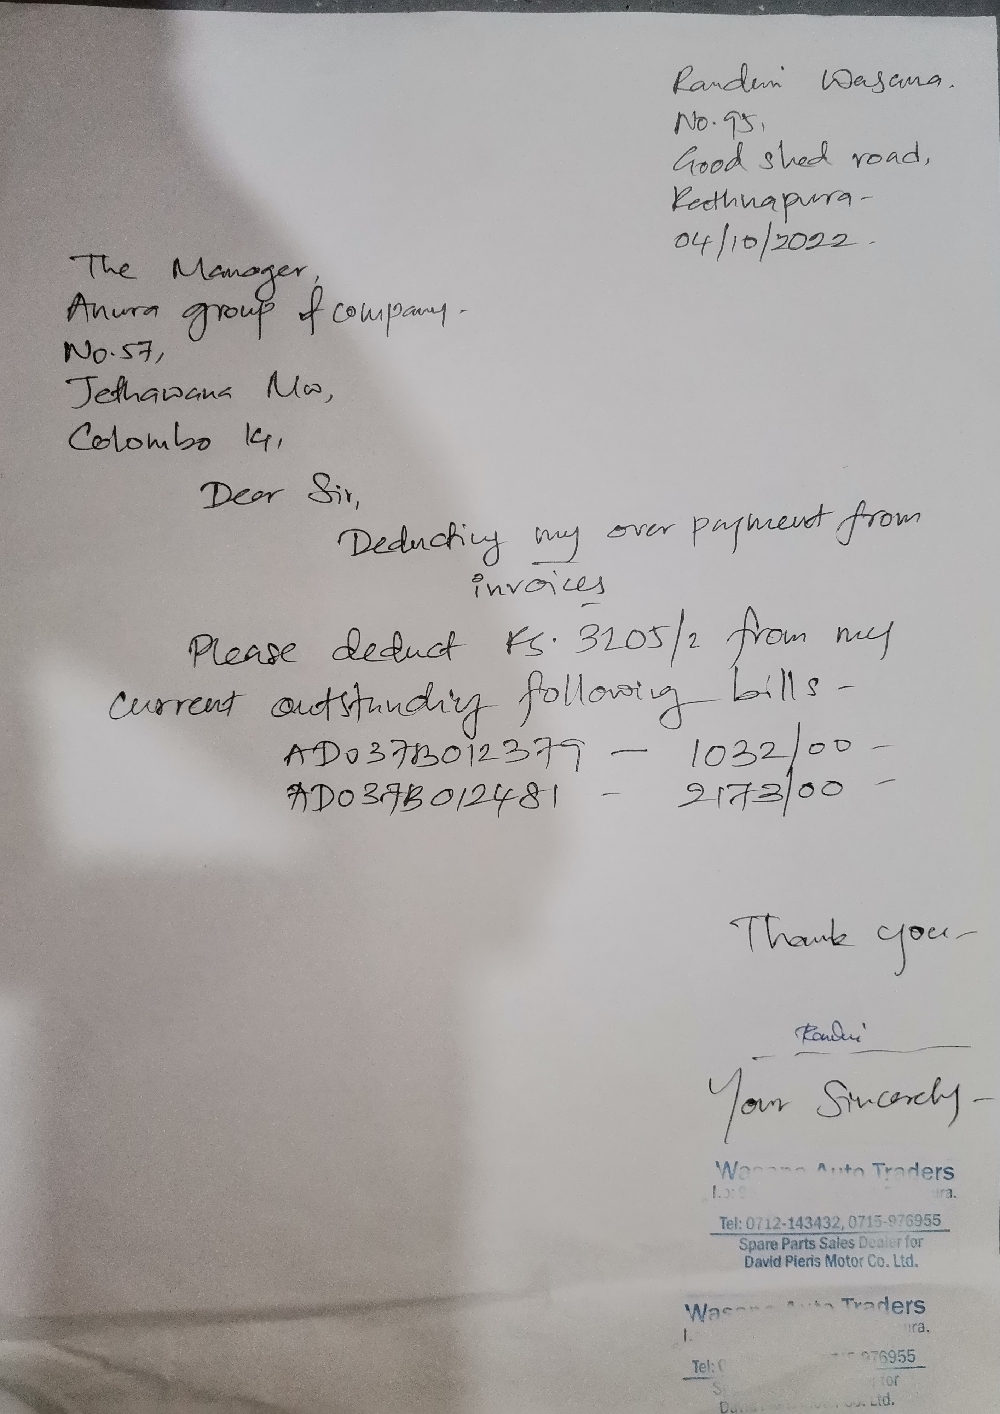 Randuni Wasana.
No. 95,
Good shed road,
Rathnapura -
04/10/2022.
The Manager,
Anura group of company.
No. 57,
Jethawana Mw,
Colombo 14,
Dear Sir,
Deducting my over payment from
invoices
Please deduct Rs. 3205/2 from my
current outstanding following bills -
AD037B012379 - 1032/00 -
AD037B012481 - 2173/00 -
Thank you -
Randuni
Your Sincerely -
Auto Traders
Tel: 0712-143432, 0715-976955
Spare Parts Sales Dealer for
David Pieris Motor Co. Ltd.
Traders
976955
for
Ltd.